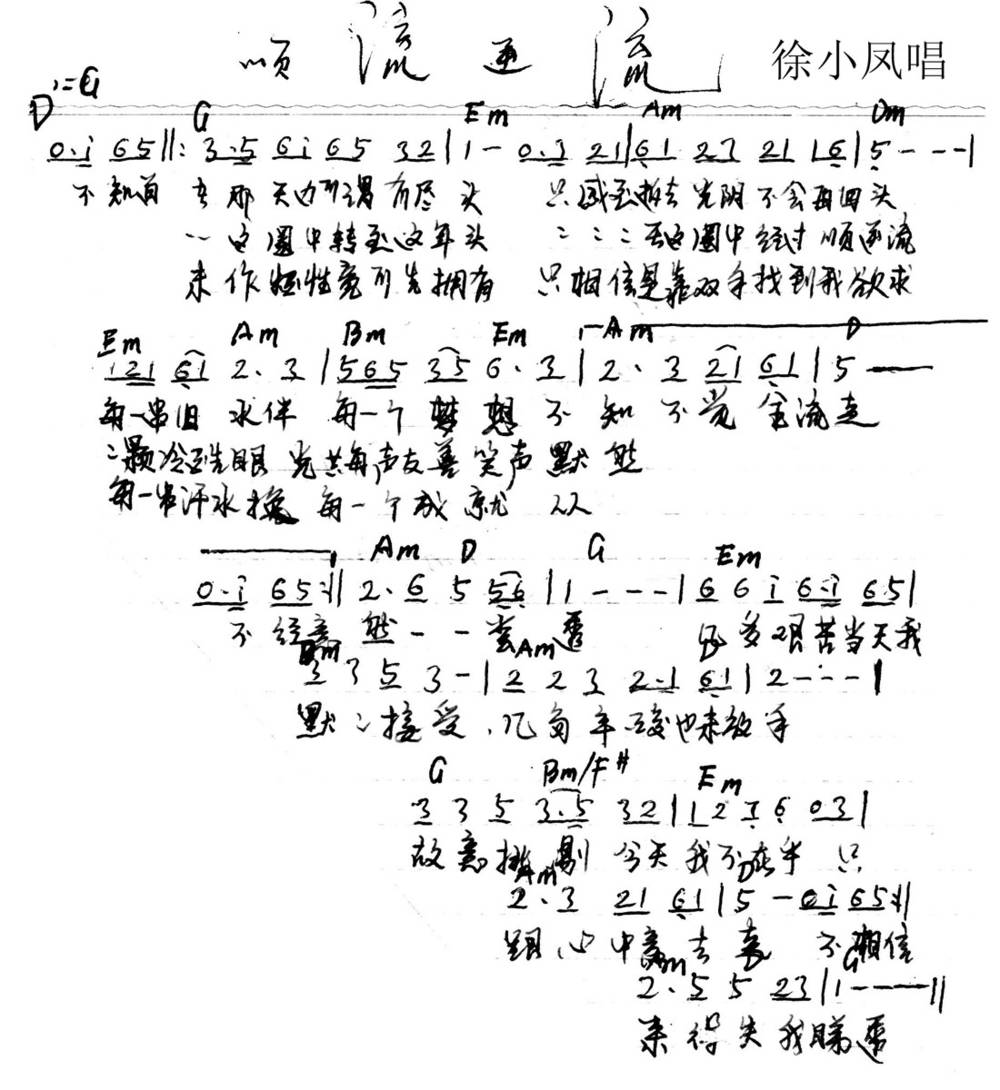 顺流逆流 徐小凤唱
1=G
D G Em Am Dm
0·i 65‖: 3·5 6i 65 32|1- 0·3 21|61 23 21 16|5---|
不知道 那天边可谓有尽头 只感到 光阴不会再回头
这圈中转到这年头 圈中经过顺逆流
未作牺牲竟可先拥有 只相信是靠双手找到我欲求
Em Am Bm Em Am D
121 61 2·3|565 35 6·3|2·3 21 61|5—
每一串泪水伴每一个梦想不知不觉全流走
颗冷酷眼光共每声友善笑声默然
每一串汗水换每一个成就 从
Am D G Em
0·i 65:‖ 2·6 5 56|1---|6 6 i 6·i 65|
不经意 然 - - 尝透 艰苦当天我
Bm Am
3 3 5 3-|2 2 3 2·1 61|2---|
默 接受 几 辛酸也未放手
G Bm/F# Em
3 3 5 3·5 32|1 2 7 6 03|
故意挑剔今天我不在乎 只
Am D
2·3 21 61|5 - 0i 65:‖
跟心中意去走 不相信
Am G
2·5 5 23|1----‖
来得失我睇透